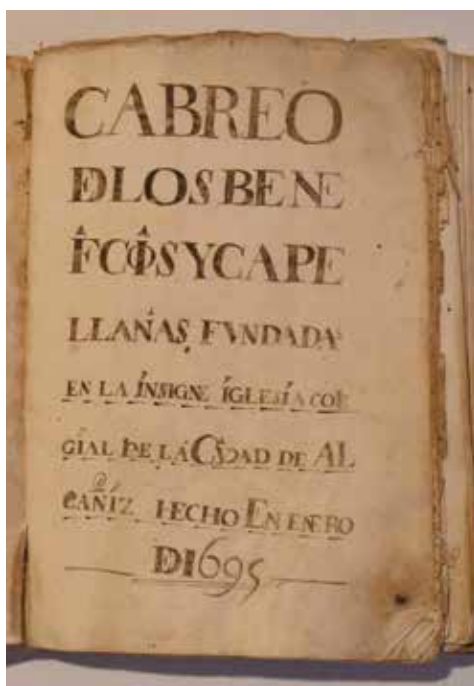 CABREO
DLOS BENE
FCIOS Y CAPE
LLANÍAS FVNDADAS
EN LA ÍNSIGNE ÍGLESÍA COLE
GÍAL DE LA CIVDAD DE AL
CAÑÍZ HECHO EN ENERO
D 1695